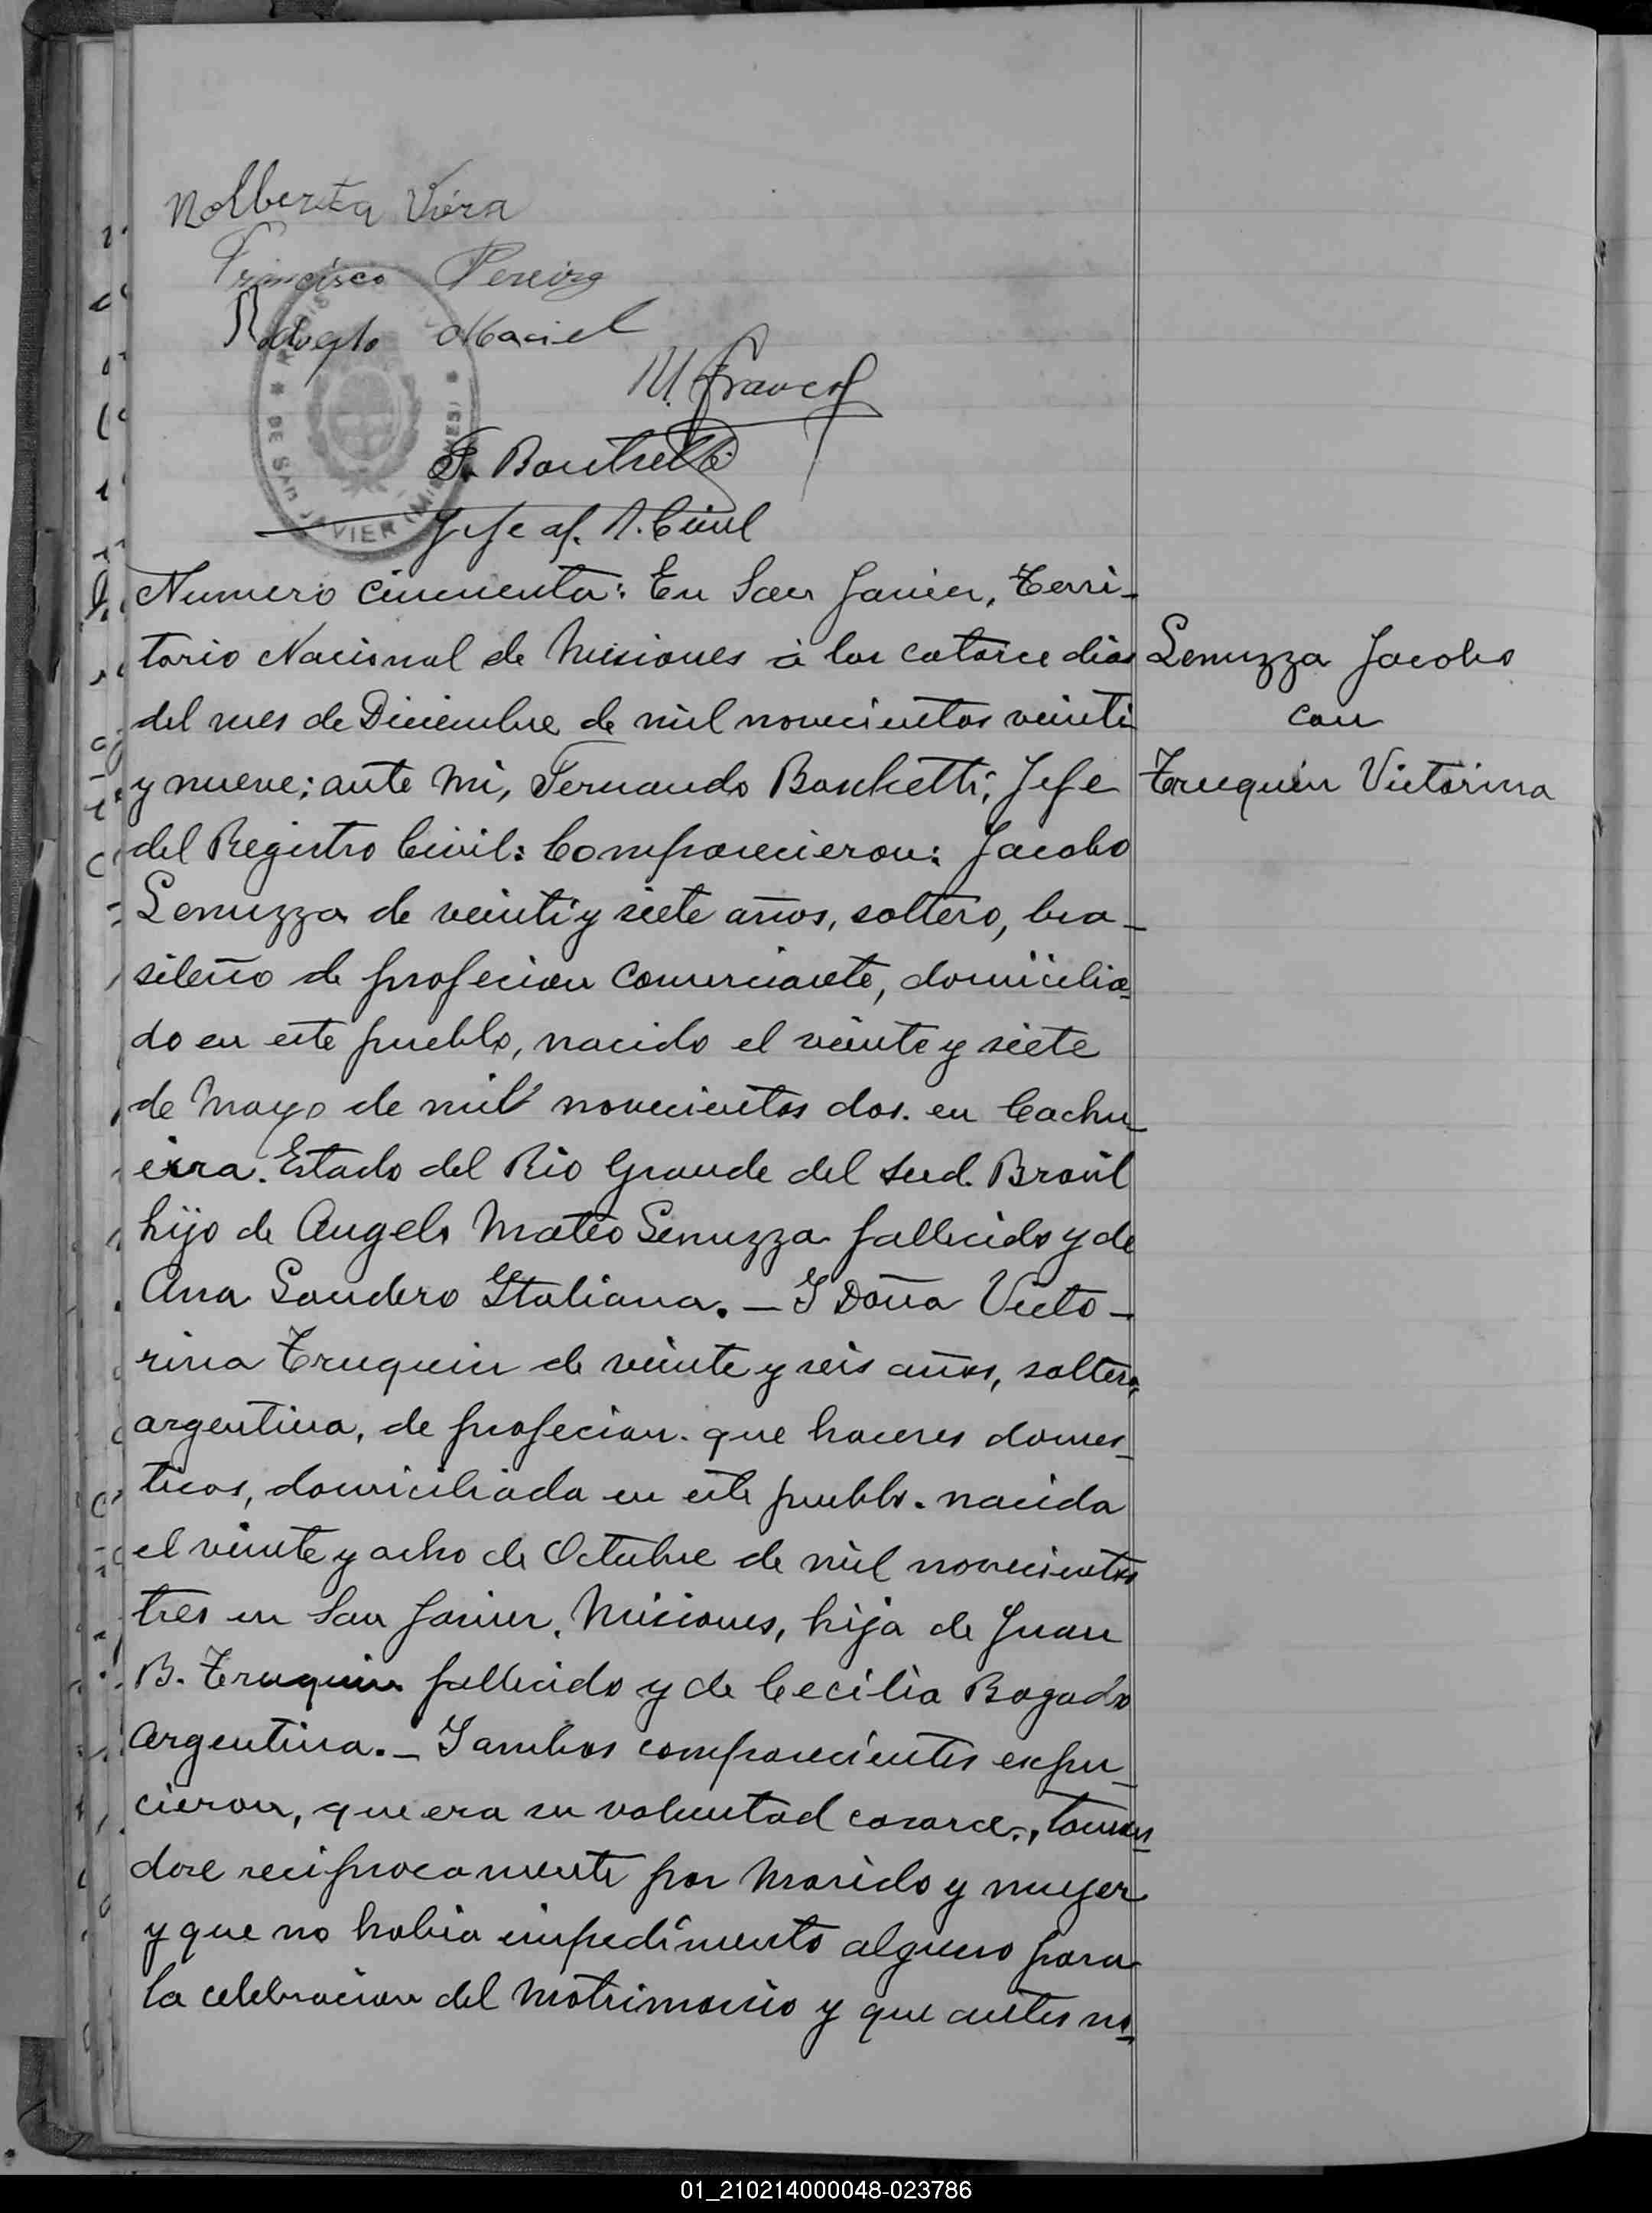 Nolberta Viera
Francisco Pereira
Rodolfo Maciel
M. Franco
F. Boschetti
Jefe of. R. Civil
DE SAN JAVIER (MISIONES)
Numero cincuenta: En San Javier, Terri-
torio Nacional de Misiones á los catorce dias
del mes de Diciembre de mil novecientos veinti
y nueve; ante mi, Fernando Boschetti; Jefe
del Registro Civil: Comparecieron: Jacobo
Lenuzza de veinti y siete años, soltero, bra-
sileño de profecion comerciante, domicilia-
do en este pueblo, nacido el veinte y siete
de Mayo de mil novecientos dos. en Cachu-
eira. Estado del Rio Grande del Sud. Brasil
hijo de Angelo Mateo Lenuzza fallecido y de
Ana Sandero Italiana. - Y Doña Victo-
rina Truquin de veinte y seis años, soltera,
argentina, de profecion. que haceres domes-
ticos, domiciliada en este pueblo. nacida
el veinte y ocho de Octubre de mil novecientos
tres en San Javier, Misiones, hija de Juan
B. Truquin fallecido y de Cecilia Bogado
Argentina. - Y ambos comparecientes expu-
cieron, que era su voluntad casarce., toman-
dose reciprocamente por Marido y muger
y que no habia impedimento alguno para
la celebracion del Matrimonio y que antes no-
Lenuzza Jacobo
con
Truquin Victorina
01_210214000048-023786